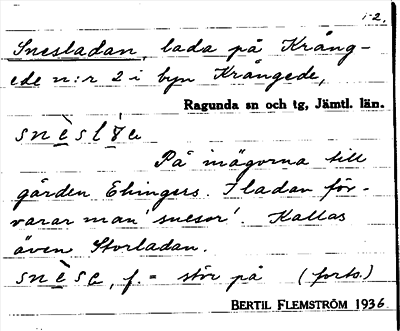 1-2.
Snesladan, lada på Kräng-
ede n:r 2 i byn Krångede,
Ragunda sn och tg, Jämtl. län.
På inägorna till
gården Ehingers. I ladan för-
varar man 'snesor'. Kallas
även Storladan.
f. = stör på (forts.)
BERTIL FLEMSTRÖM 1936.